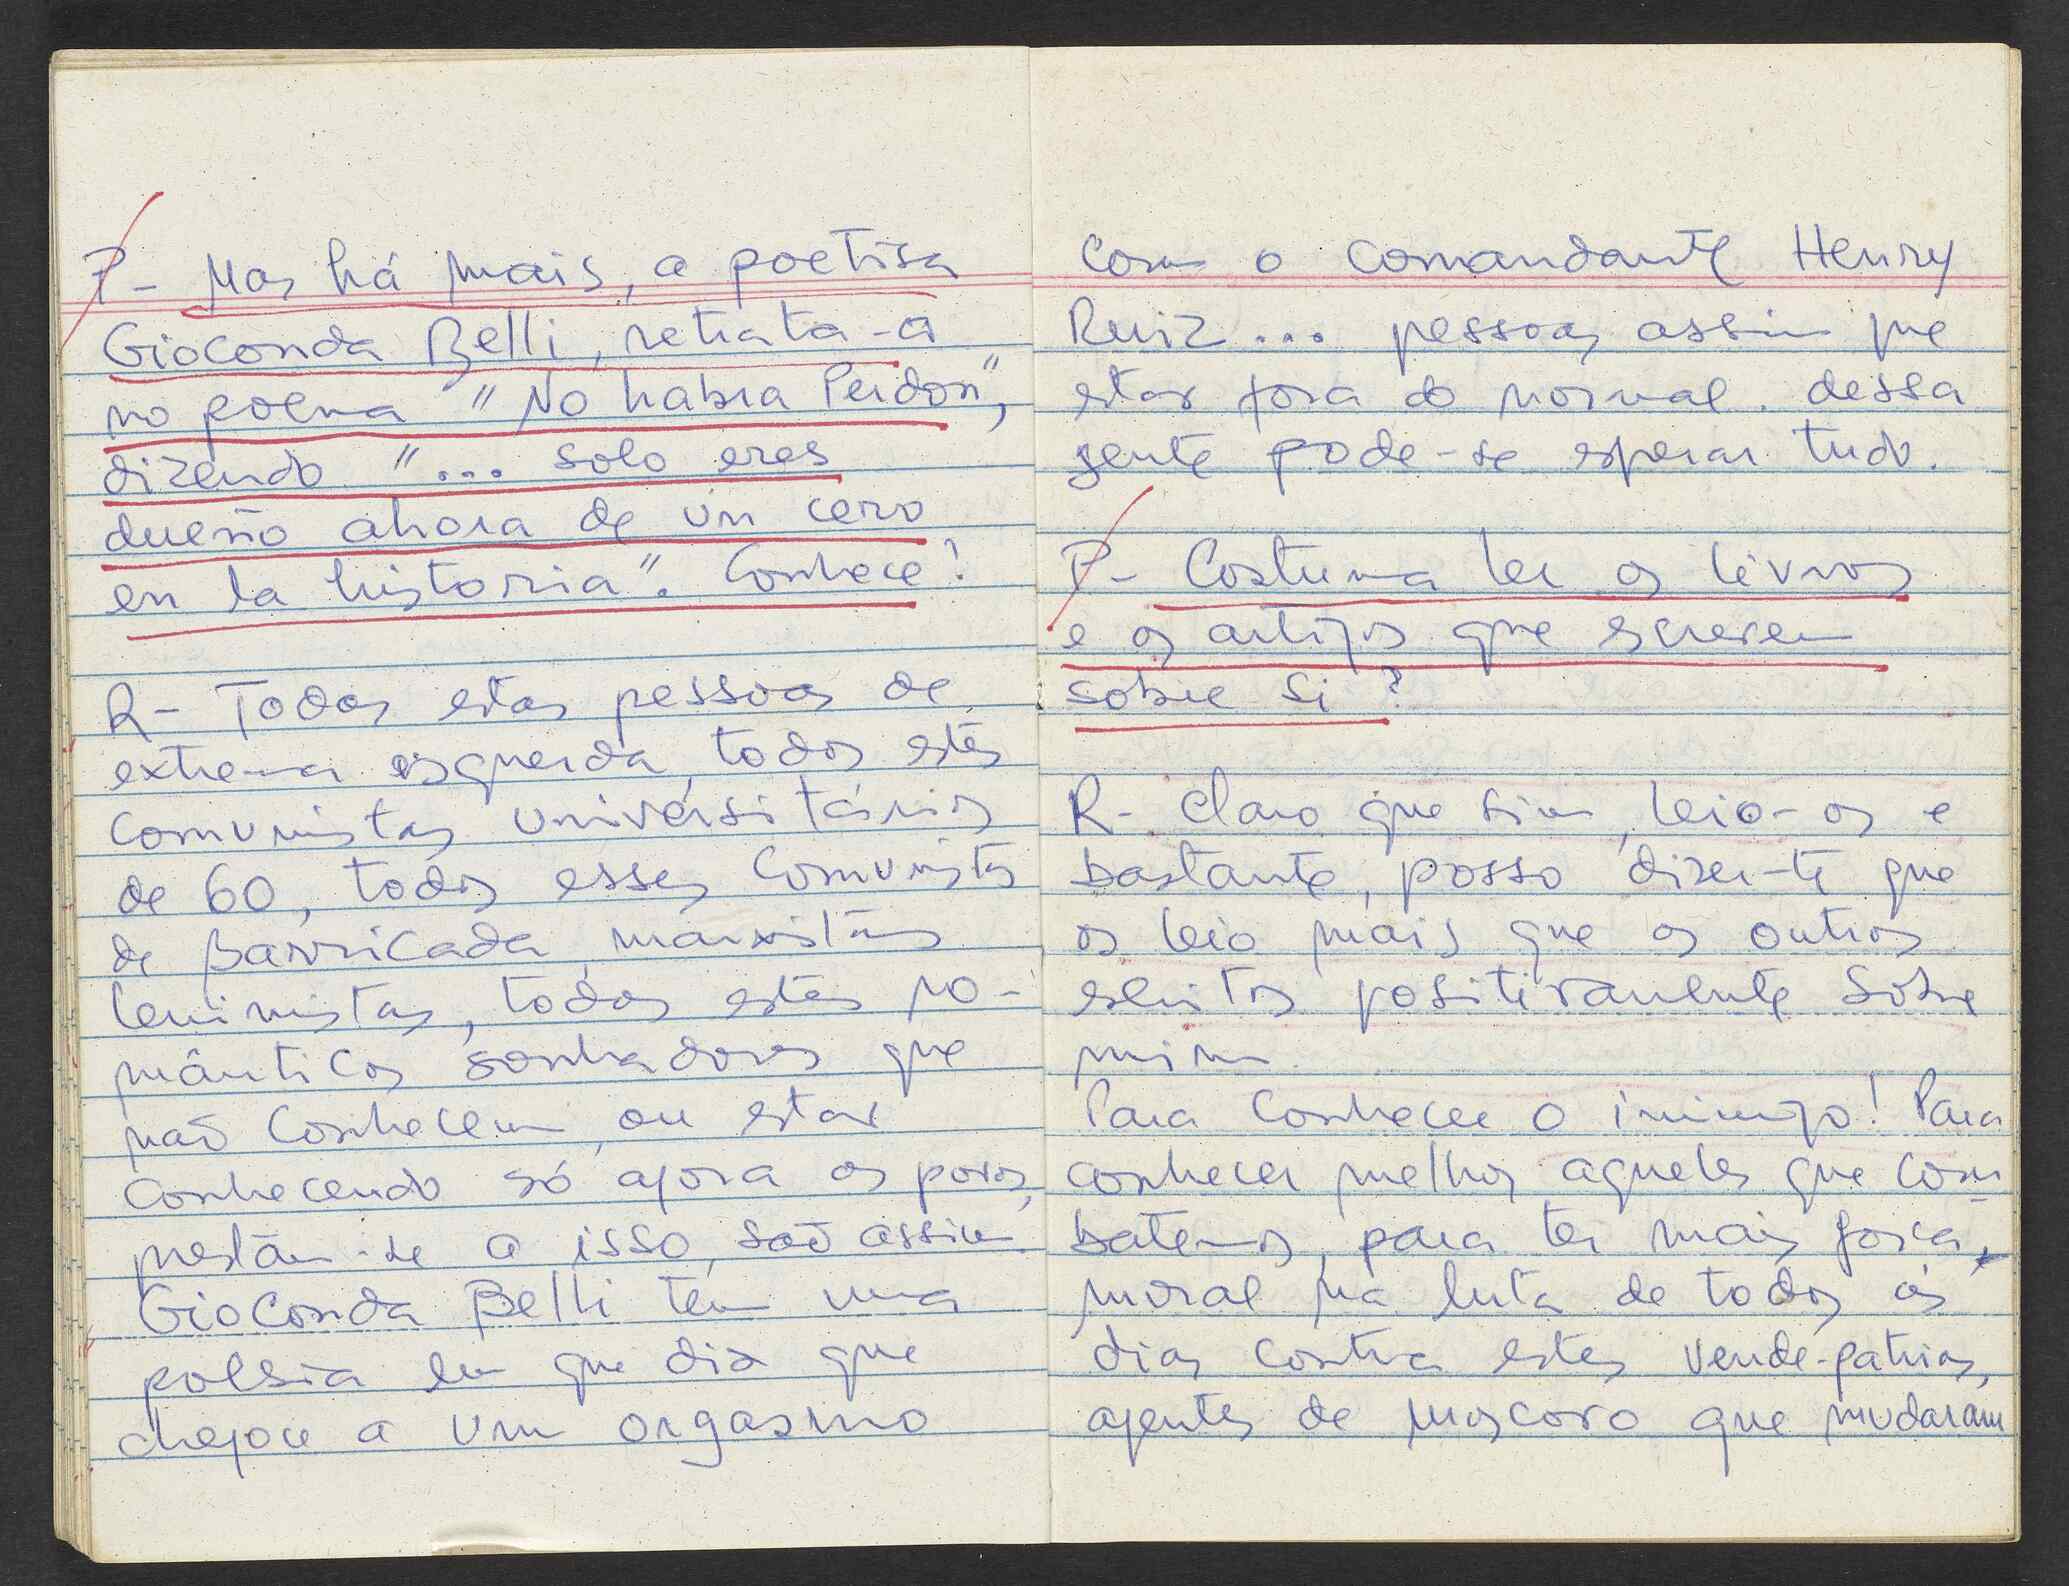 P- Mas há mais, a poetisa
Gioconda Belli, retrata-a
no poema "No habra Perdon",
dizendo "... solo eres
dueño ahora de un cero
en la historia". Conhece?
R- Todas estas pessoas de
extrema esquerda, todos estes
comunistas universitários
de 60, todos esses comunistas
de Barricada, marxistas
leninistas, todos estes ro-
mânticos sonhadores que
não conhecem, ou estar
conhecendo só agora os povos,
prestam-se a isso, são assim.
Gioconda Belli tem uma
poesia em que diz que
chegou a um orgasmo
com o comandante Henry
Ruiz... pessoas assim que
estar fora do normal. dessa
gente pode-se esperar tudo.
P- Costuma ler os livros
e os artigos que escrevem
sobre si?
R- Claro que sim, leio-os e
bastante, posso dizer-te que
os leio mais que os outros
escritos positivamente sobre
mim
Para conhecer o inimigo! Para
conhecer melhor aqueles que com-
batemos, para ter mais força,
moral na luta de todos os
dias contra estes vende-patrias,
agentes de moscovo que mudaram